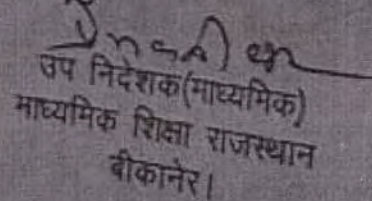 उप निदेशक(माध्यमिक)
माध्यमिक शिक्षा राजस्थान
बीकानेर।